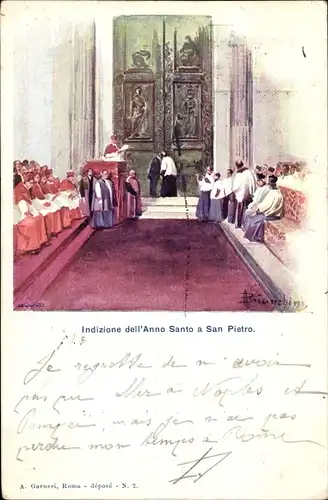 Indizione dell'Anno Santo a San Pietro.
Je regrette de n'avoir
pas pu aller à Naples et
Pompei, mais je n'ai pas
perdu mon temps à Rome
A. Garneri, Roma - déposé - N. 2.